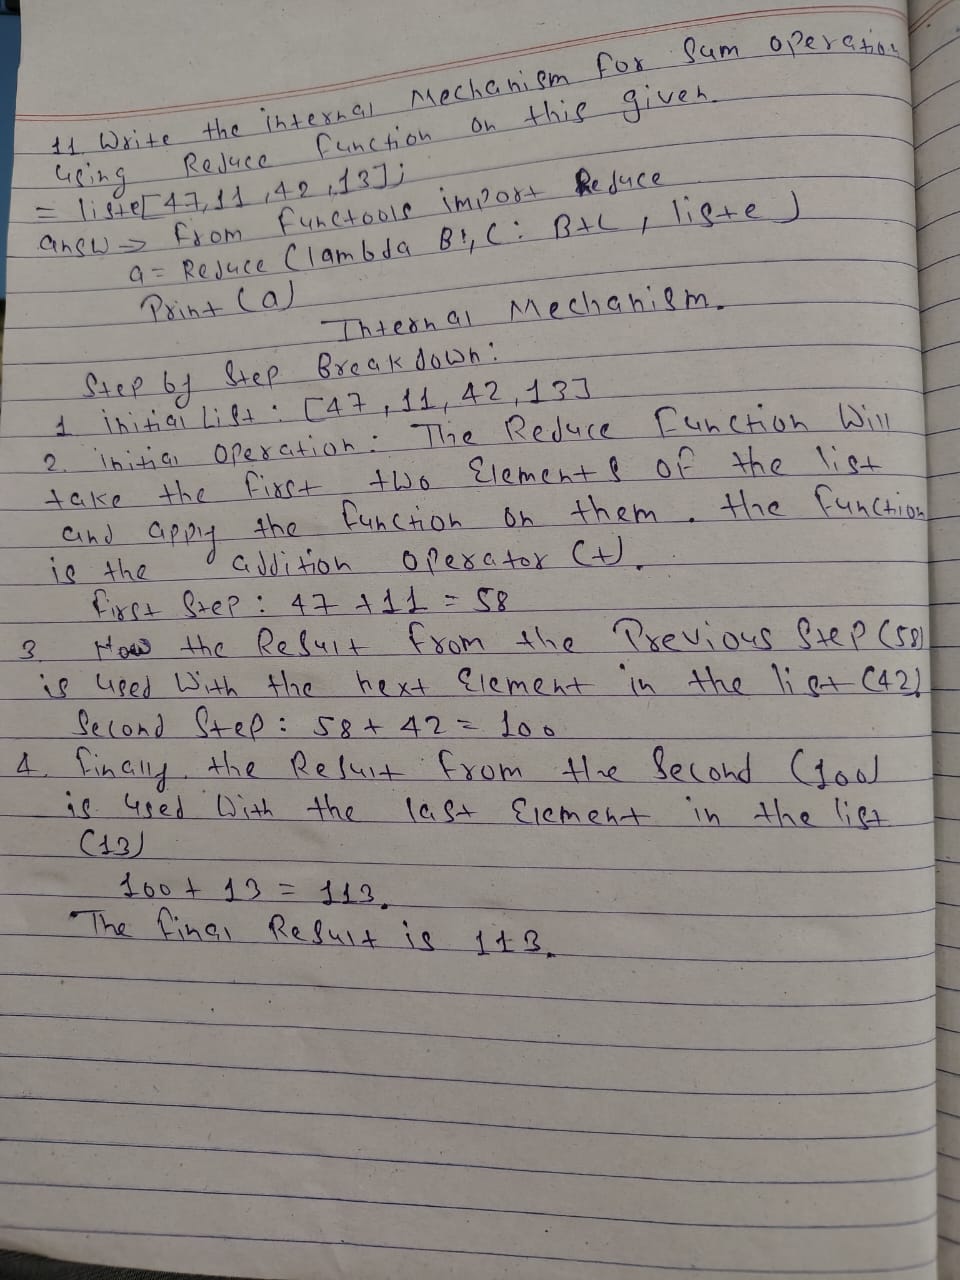 11 Write the internal Mechanism for Sum operation
using Reduce function on this given.
= liste[47,11,42,13];
answ → from functools import Reduce
a = Reduce (lambda B, C: B+C, liste)
Print (a)
Internal Mechanism.
Step by Step Breakdown:
1 initial List: [47, 11, 42, 13]
2. initial operation: The Reduce Function Will
take the first two Elements of the list
and apply the function on them. the function
is the addition operator (+).
first Step: 47 + 11 = 58
3. Now the Result from the Previous Step (58)
is used With the next Element in the list (42)
Second Step: 58 + 42 = 100
4. finally, the Result from the Second (100)
is used With the last Element in the list
(13)
100 + 13 = 113.
The final Result is 113.